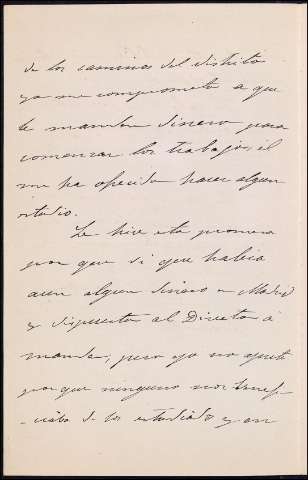 de los caminos del distrito
yo me comprometo a que
le manden dinero para
comenzar los trabajos; él
me ha ofrecido hacer algun
estudio.
Le hice esta promesa
por que sé que habia
aun algun dinero en Madrid
y dispuesto al Director á
mandar, pero yo no
por que ninguno nos
de los estudiados y en